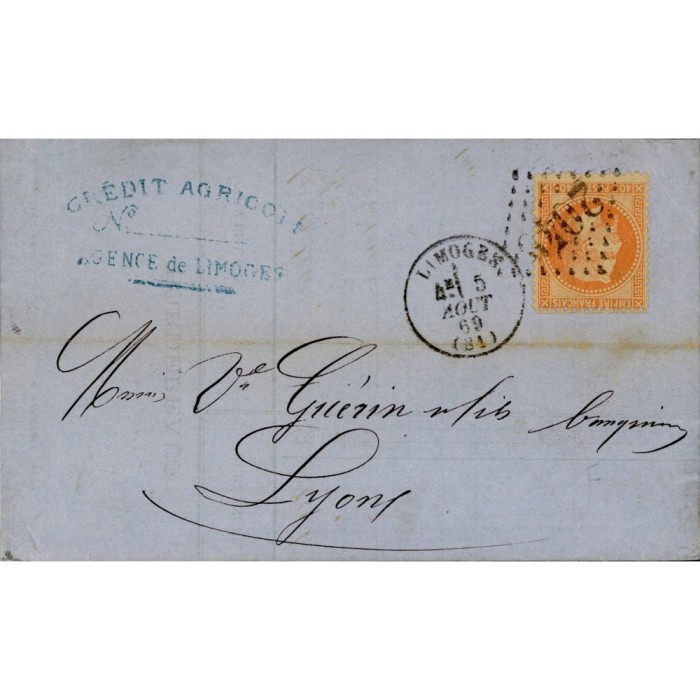 CRÉDIT AGRICOLE
N°
AGENCE de LIMOGES
LIMOGES
5
AOUT
69
(81)
EMPIRE FRANÇAIS
Vve Guérin & fils banquiers
Lyon